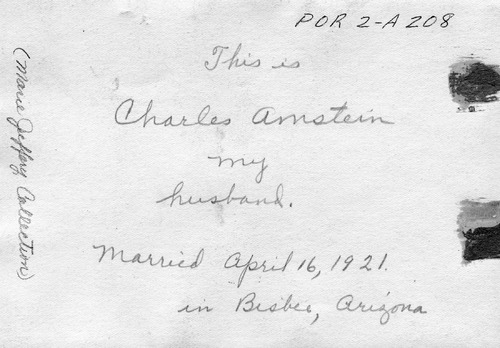 POR 2-A 208
This is
Charles Arnstein
my
husband.
Married April 16, 1921.
in Bisbee, Arizona
(Marie Jeffery Collection)